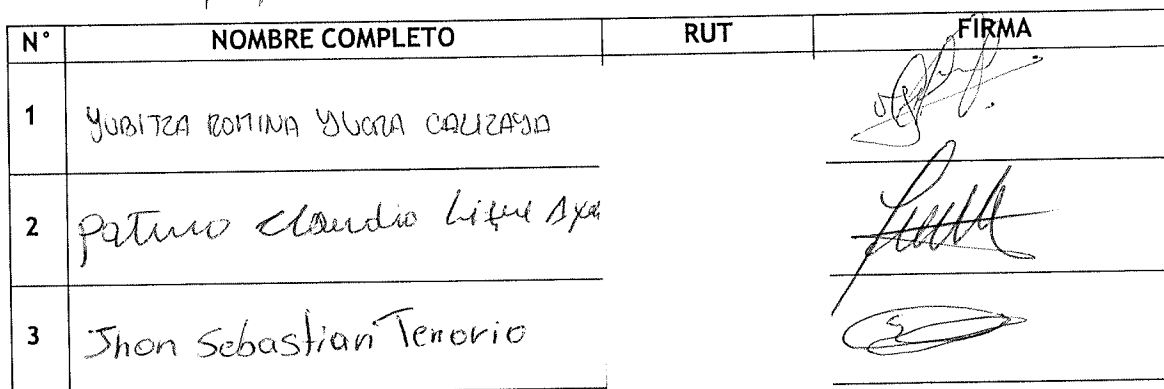 N° NOMBRE COMPLETO RUT FIRMA
1 YUBITZA ROMINA YUCRA CALIZAYA
2 Patricio Claudio
3 Jhon Sebastian Tenorio